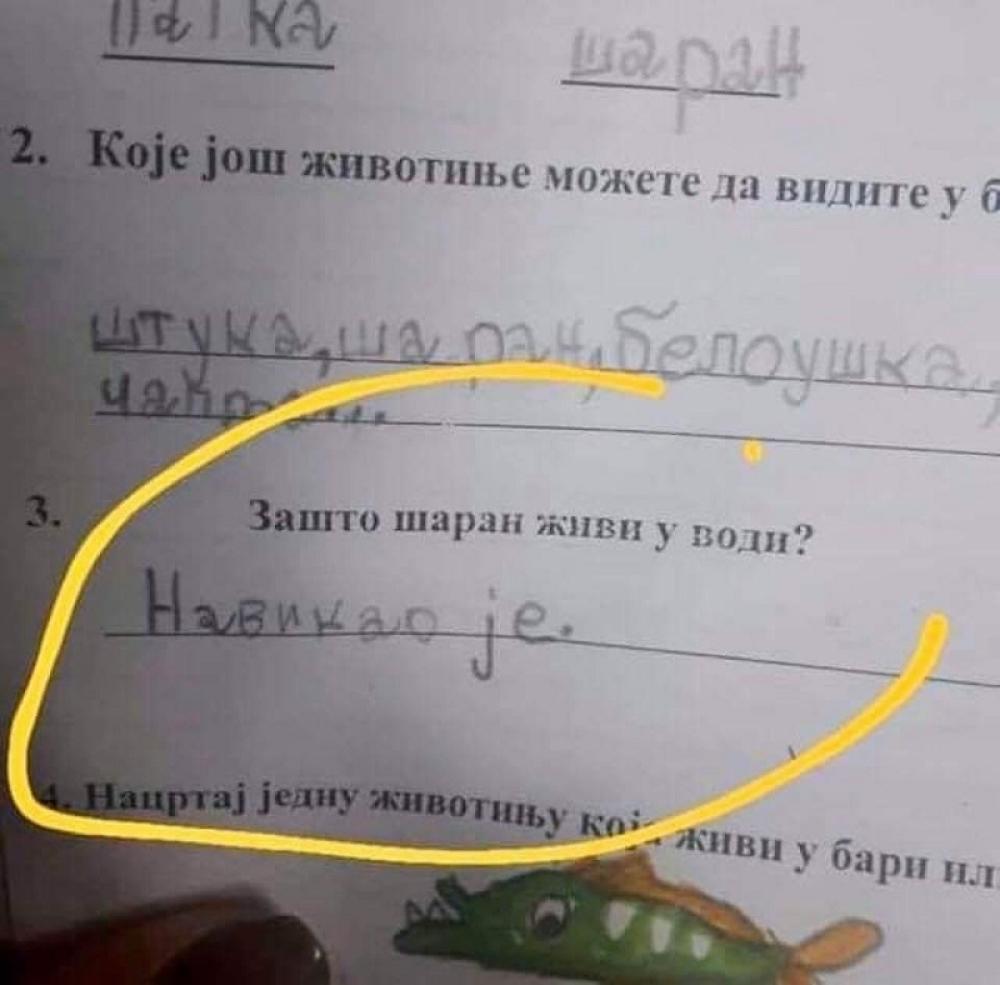 патка шаран
2. Које још животиње можете да видите у б
штука, шаран, белоушка,
3. Зашто шаран живи у води?
Навикао је.
4. Нацртај једну животињу која живи у бари ил